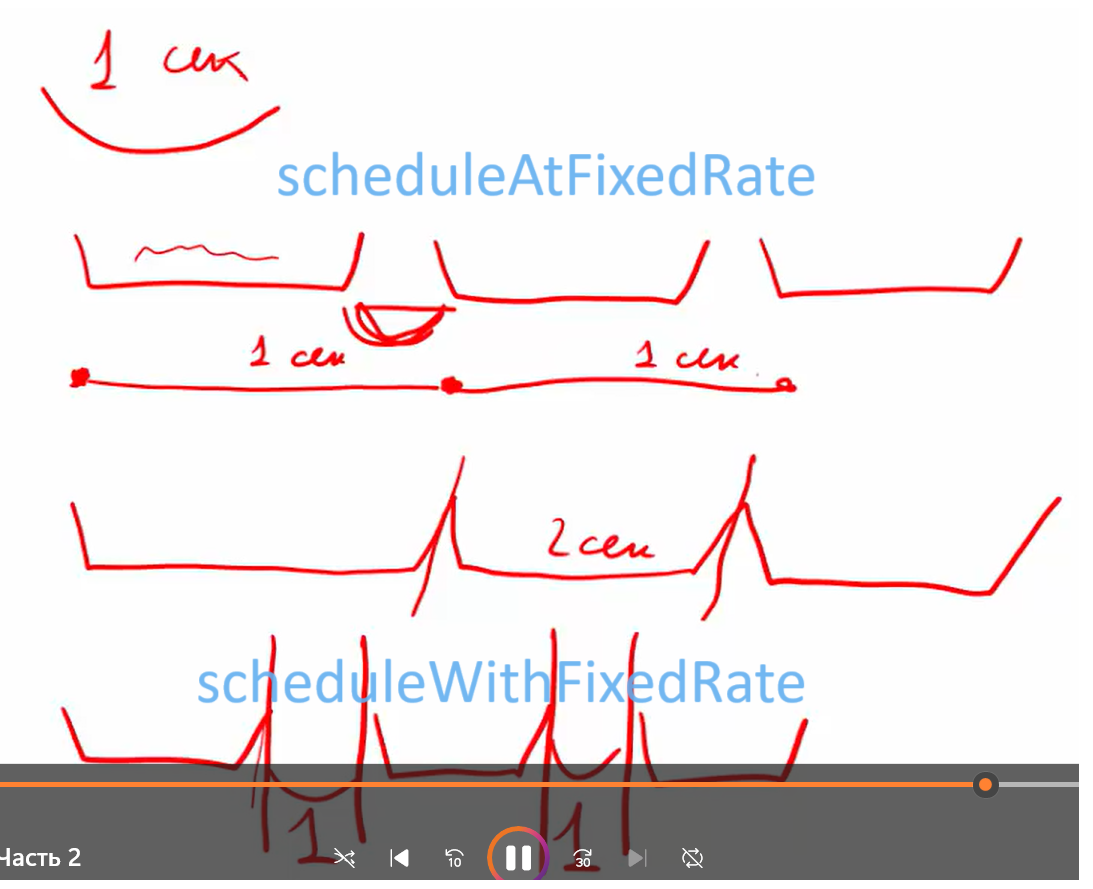 1 сек
scheduleAtFixedRate
1 сек 1 сек
2 сек
scheduleWithFixedRate
1 1
Часть 2
10 30